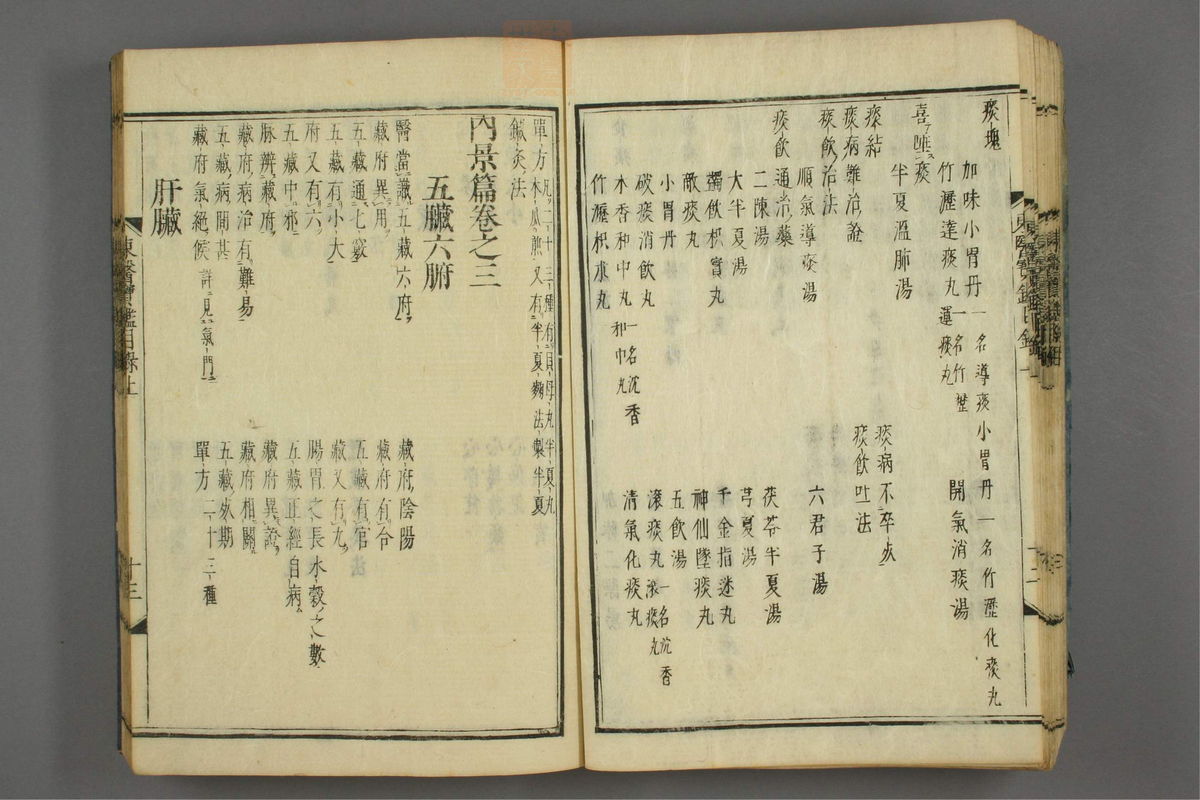 痰塊
加味小胃丹 一名導痰小胃丹 一名竹瀝化痰丸
竹瀝達痰丸 一名竹瀝運痰丸
開氣消痰湯
喜唾痰
半夏溫肺湯
痰結
痰病不卒死
痰病難治證
痰飮吐法
痰飮治法
順氣導痰湯
六君子湯
痰飮通治藥
二陳湯
茯苓半夏湯
大半夏湯
芎夏湯
蠲飮枳實丸
千金指迷丸
敵痰丸
神仙墜痰丸
小胃丹
五飮湯
破痰消飮丸
滚痰丸 一名沉香滚痰丸
木香和中丸 一名沉香和中丸
清氣化痰丸
竹瀝枳朮丸
東醫寶鑑目錄上
十二
單方 凡二十三種 有貝母丸半夏丸木瓜煎 又有半夏麴法製半夏
鍼灸法
內景篇卷之三
五臟六腑
醫當識五藏六府
藏府陰陽
藏府異用
藏府有合
五藏通七竅
五藏有官
五藏有小大
藏又有九
府又有六
腸胃之長水穀之數
五藏中邪
五藏正經自病
脉辨藏府
藏府異證
藏府病治有難易
藏府相關
五藏病間甚
五藏死期
藏府氣絕候 詳見氣門
單方 二十三種
肝臟
東醫寶鑑目錄上
十三